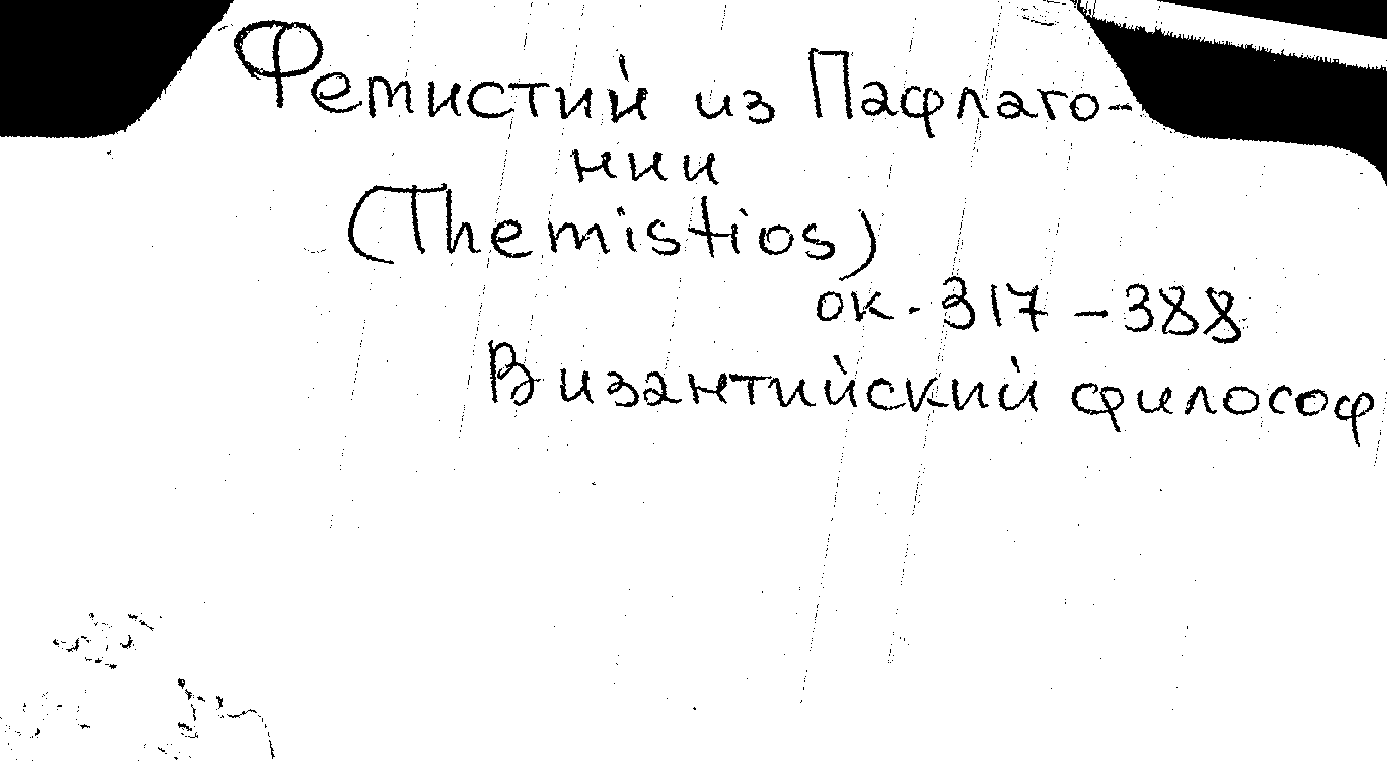 Фемистий из Пафлаго-
нии
(Themistios)
ок. 317 – 388
Византийский философ